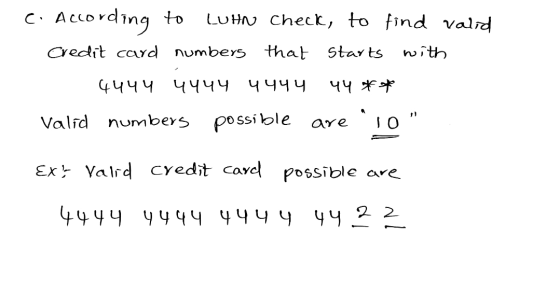 C. According to LUHN check, to find valid
Credit card numbers that starts with
4444 4444 4444 44 **
Valid numbers possible are "10"
Ex:- Valid credit card possible are
4444 4444 4444 44 2 2